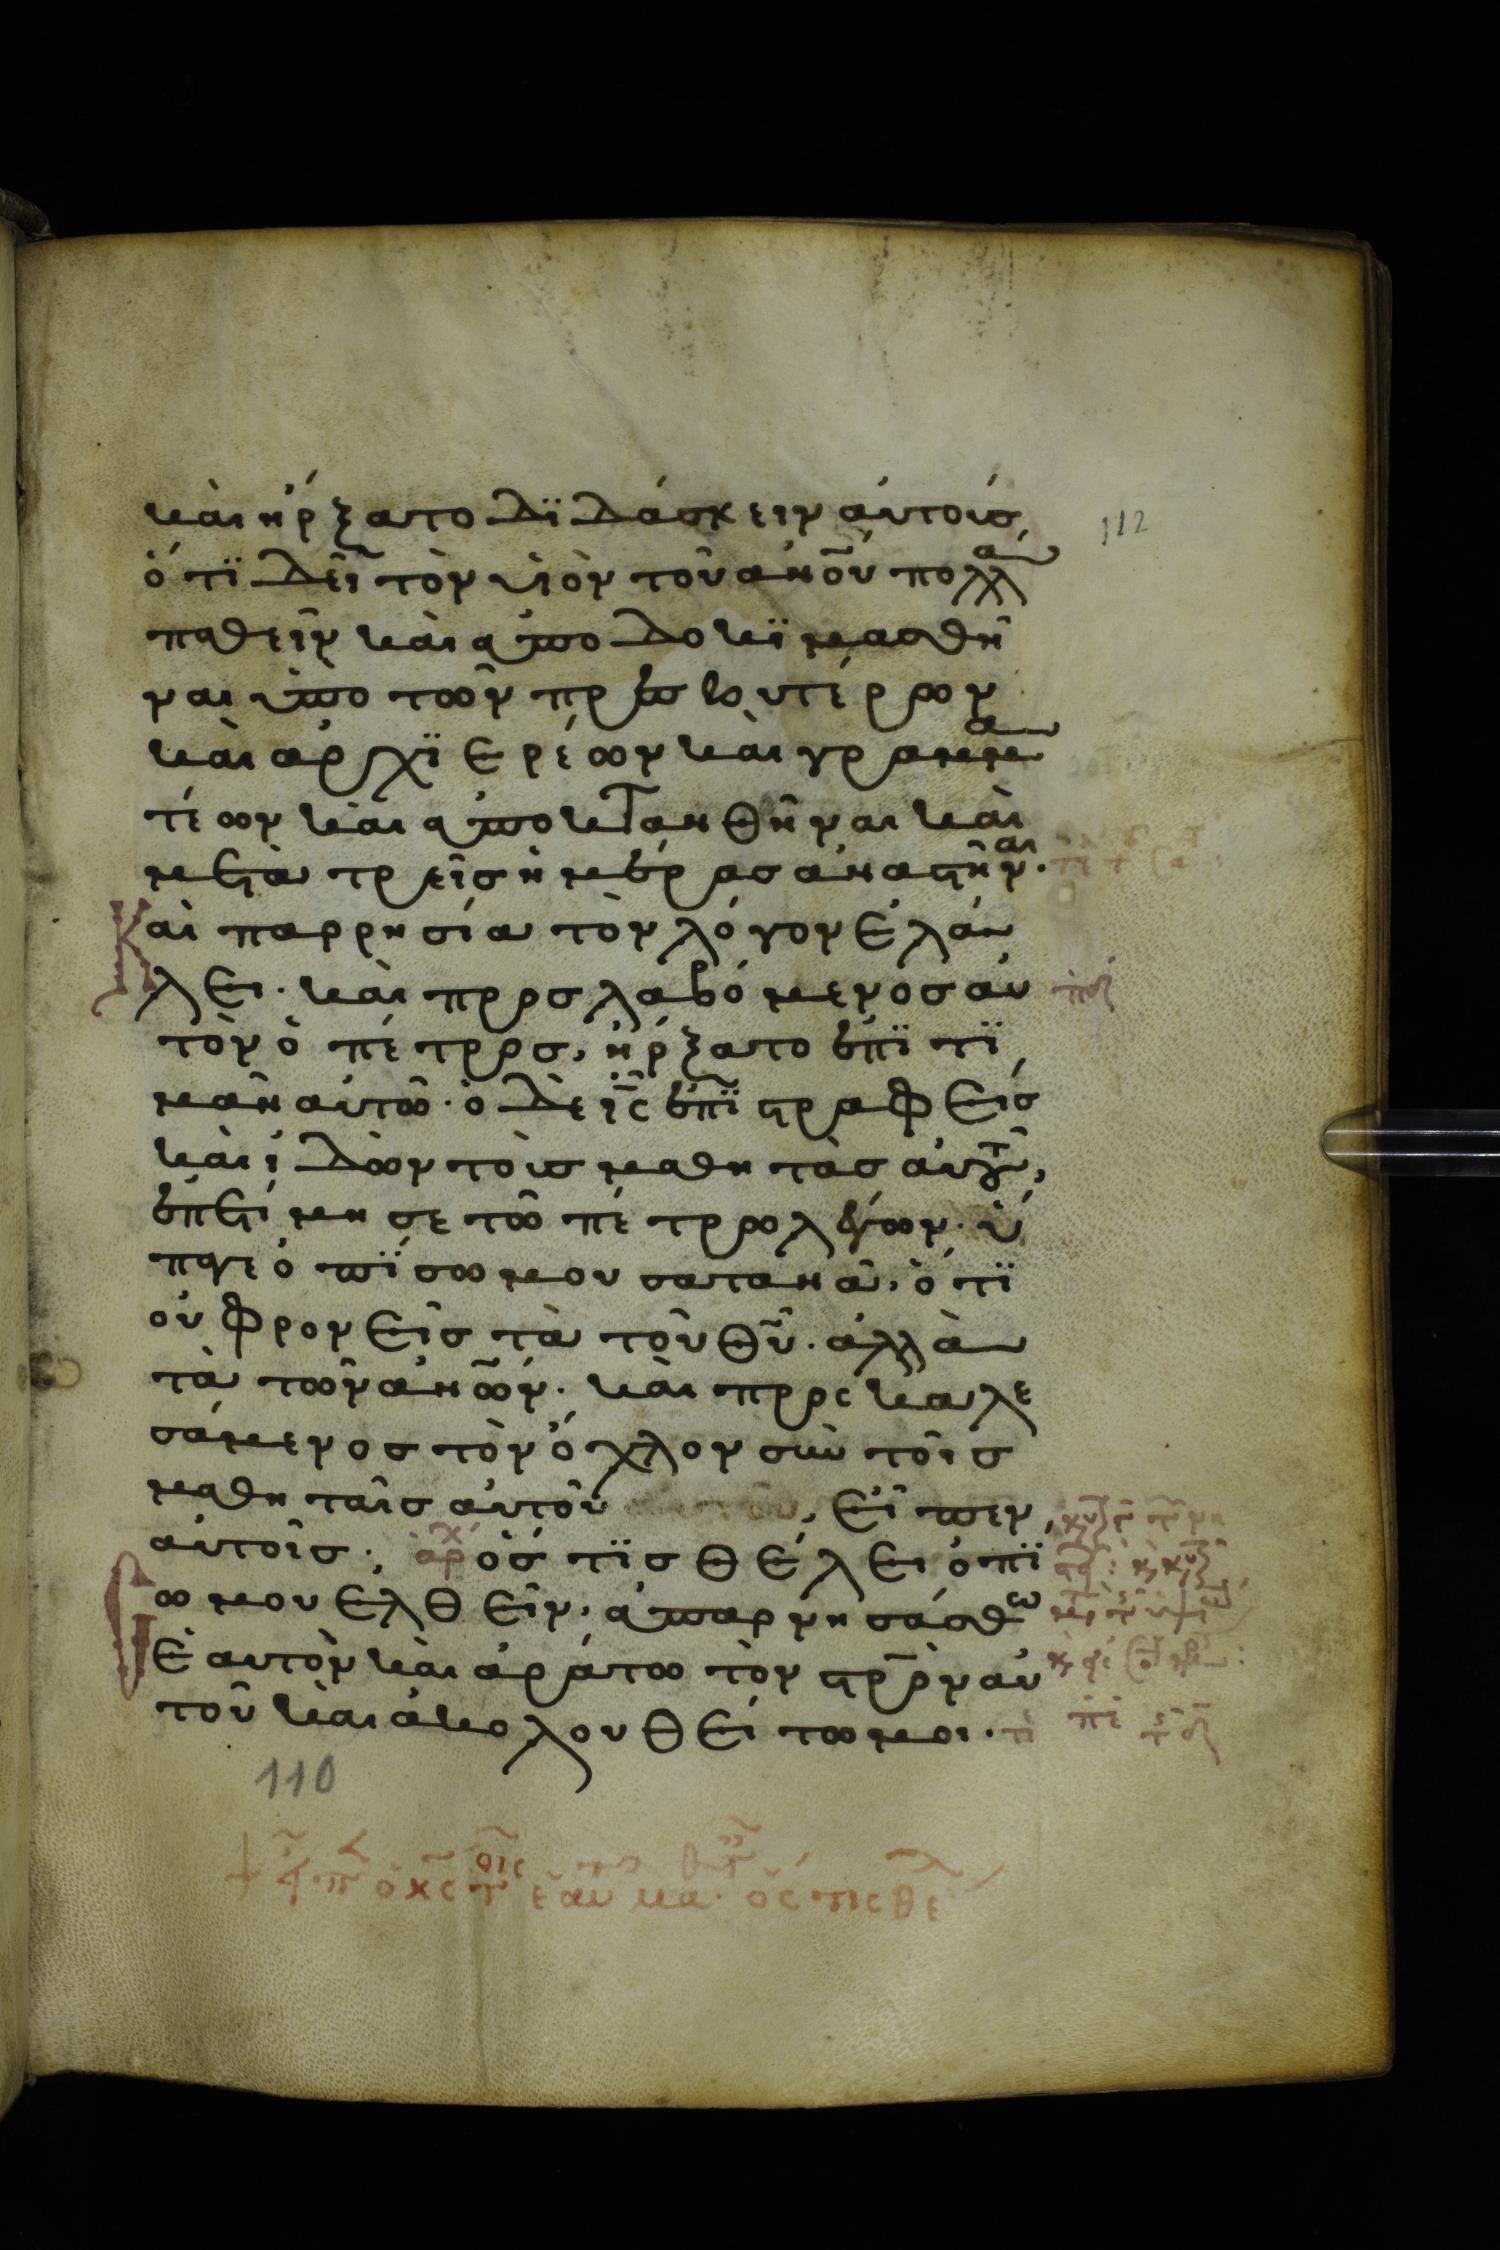 καὶ ἤρξατο διδάσκειν αὐτοὺς,
ὅτι δεῖ τὸν υἱὸν τοῦ ἀν̅ου πολλὰ
παθεῖν καὶ ἀποδοκιμασθῆ
ναι ὑπο τῶν πρεσβυτέρων
καὶ ἀρχιερέων καὶ γραμμα
τέων καὶ ἀποκτανθῆναι καὶ
μετὰ τρεῖς ἡμέρας ἀναστῆναι.
Καὶ παρρησία τὸν λόγον ἐλά
λει. καὶ προσλαβόμενος αὐ
τὸν ὁ πέτρος, ἤρξατο ἐπιτι
μᾶν αὐτῶ. ὁ δὲ ι̅ς̅ ἐπιστραφεὶς
καὶ ἰδὼν τοὺς μαθητὰς αὐτοῦ,
ἐπετίμησε τῶ πέτρω λέγων. ὕ
παγε ὀπίσω μου σατανᾶ, ὅτι
οὐ φρονεῖς τὰ τοῦ θ̅υ̅. ἀλλὰ
τὰ τῶν ἀν̅ων. καὶ προσκαλε
σάμενος τὸν ὄχλον σὺν τοῖς
μαθηταῖς αὐτοῦ, εἶπεν,
αὐτοῖς. ἀρχ ὅστις θέλει ὀπί
σω μου ἐλθεῖν, ἀπαρνησάσθω
ἑαυτὸν καὶ ἀράτω τὸν στ̅ρ̅ὸν αὐ
τοῦ καὶ ἀκολουθείτω μοι.
112
110
ὅς τις θέ